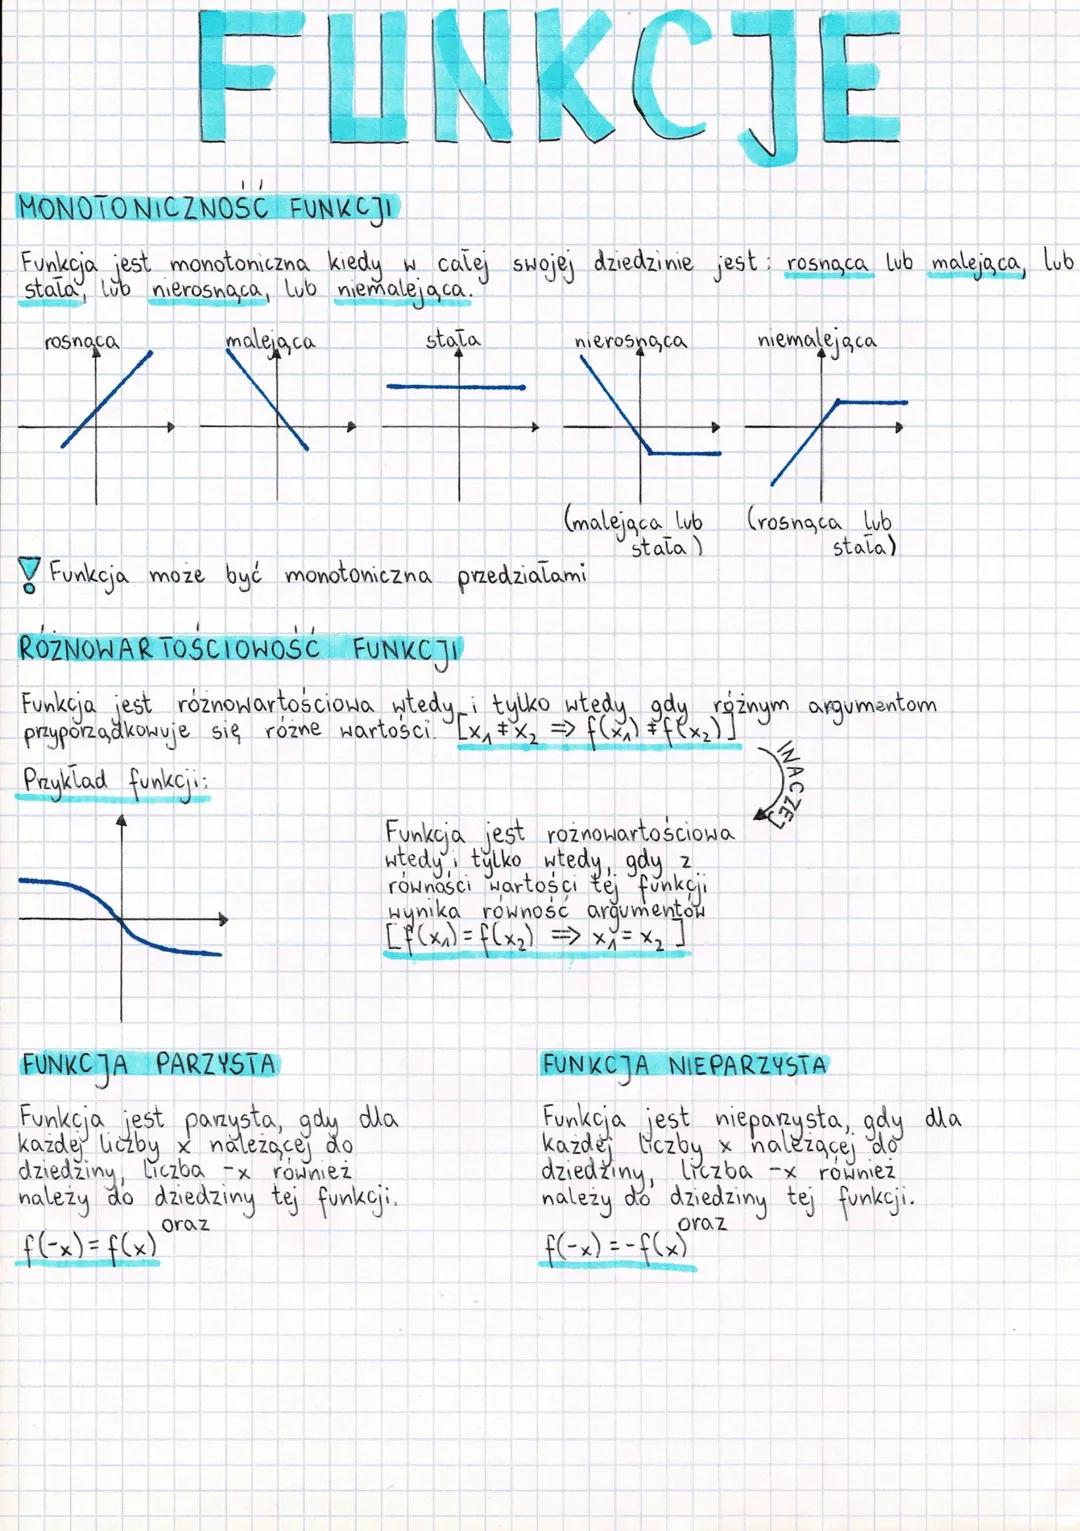 FUNKCJE
MONOTONICZNOŚĆ FUNKCJI
Funkcja jest monotoniczna kiedy w całej swojej dziedzinie jest: rosnąca lub malejąca, lub
stała, lub nierosnąca, lub niemalejąca.
rosnąca malejąca stała nierosnąca niemalejąca
(malejąca lub
stała)
(rosnąca lub
stała)
! Funkcja może być monotoniczna przedziałami
RÓŻNOWARTOŚCIOWOŚĆ FUNKCJI
Funkcja jest różnowartościowa wtedy i tylko wtedy gdy różnym argumentom
przyporządkowuje się różne wartości. [x₁ ≠ x₂ ⇒ f(x₁) ≠ f(x₂)]
INACZEJ
Przykład funkcji:
Funkcja jest różnowartościowa
wtedy i tylko wtedy, gdy z
równości wartości tej funkcji
wynika równość argumentów
[f(x₁) = f(x₂) ⇒ x₁ = x₂]
FUNKCJA PARZYSTA
Funkcja jest parzysta, gdy dla
każdej liczby x należącej do
dziedziny, liczba -x również
należy do dziedziny tej funkcji.
oraz
f(-x) = f(x)
FUNKCJA NIEPARZYSTA
Funkcja jest nieparzysta, gdy dla
każdej liczby x należącej do
dziedziny, liczba -x również
należy do dziedziny tej funkcji.
oraz
f(-x) = -f(x)